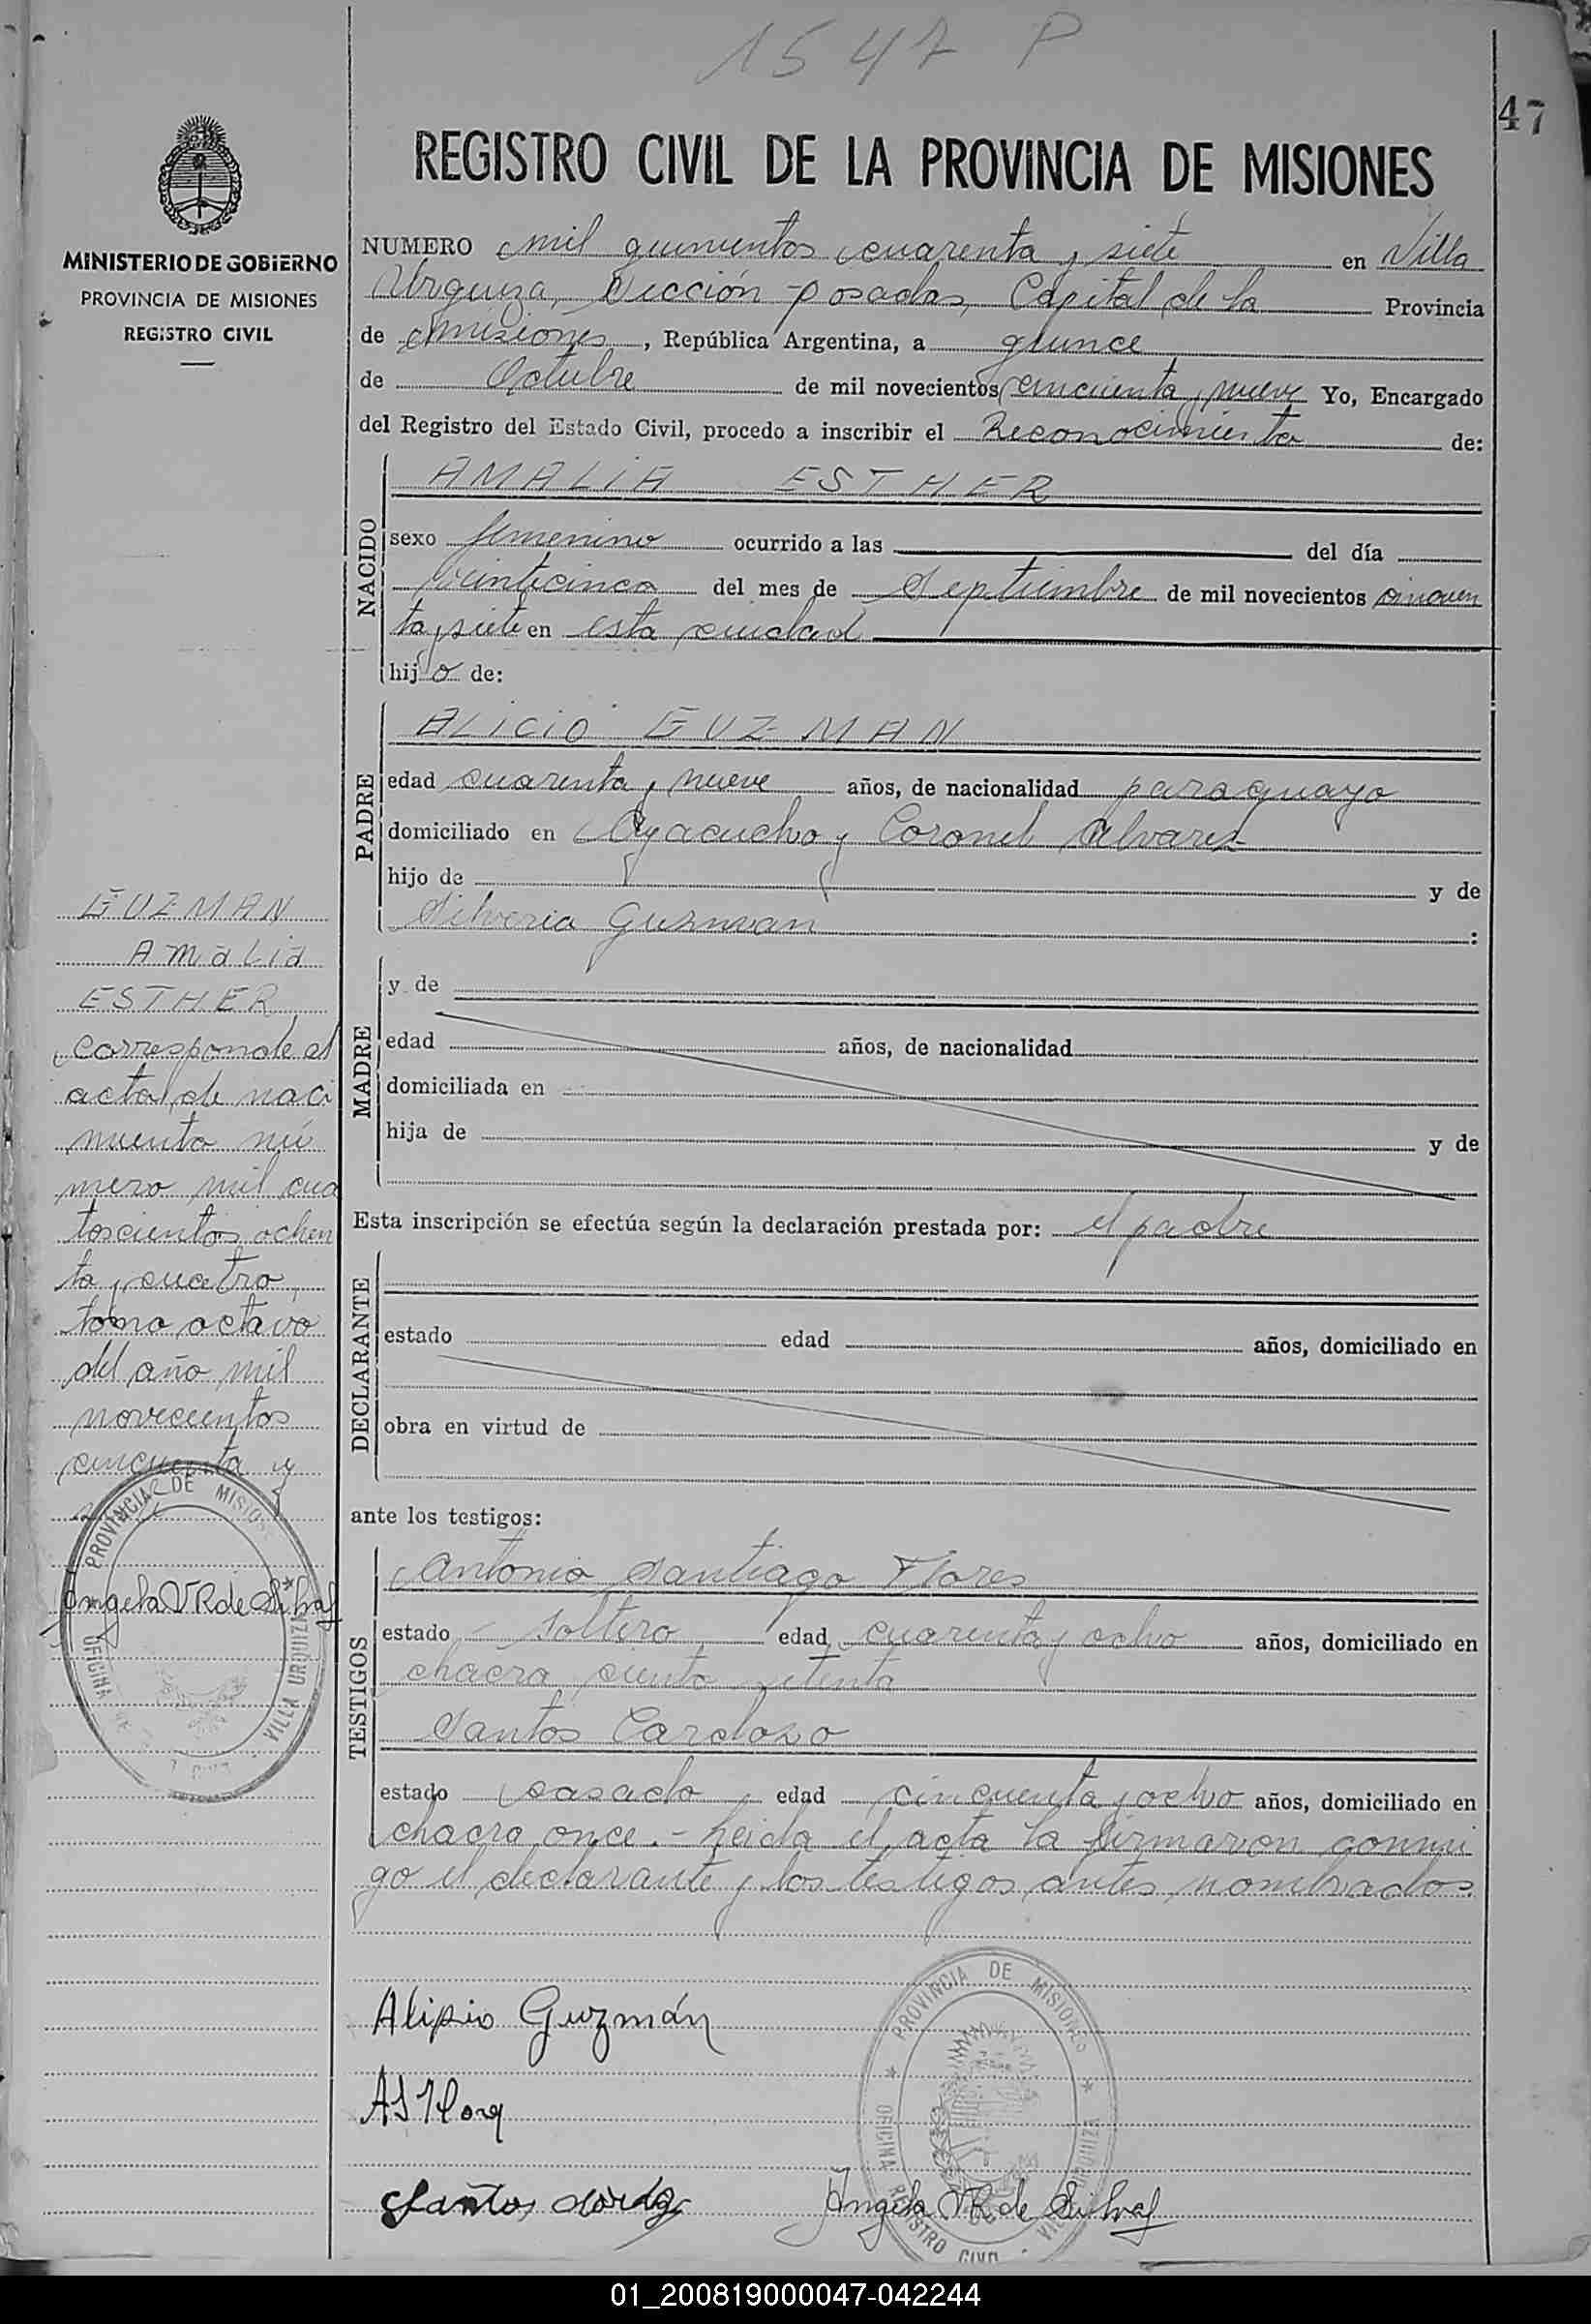 1547 P
47
REGISTRO CIVIL DE LA PROVINCIA DE MISIONES
MINISTERIO DE GOBIERNO
PROVINCIA DE MISIONES
REGISTRO CIVIL
NUMERO mil quinientos cuarenta y siete en Villa
Urquiza, Sección Posadas, Capital de la Provincia
de Misiones, República Argentina, a quince
de Octubre de mil novecientos cincuenta y nueve Yo, Encargado
del Registro del Estado Civil, procedo a inscribir el Reconocimiento de:
NACIDO
AMALIA ESTHER
sexo femenino ocurrido a las del día
veinticinco del mes de Septiembre de mil novecientos cincuen
ta y siete en esta ciudad
hijo de:
PADRE
ALICIO GUZMAN
edad cuarenta y nueve años, de nacionalidad paraguayo
domiciliado en Ayacucho y Coronel Alvarez
hijo de y de
Silveria Guzman :
MADRE
y de
edad años, de nacionalidad
domiciliada en
hija de y de
Esta inscripción se efectúa según la declaración prestada por: el padre
DECLARANTE
estado edad años, domiciliado en
obra en virtud de
ante los testigos:
TESTIGOS
Antonio Santiago Flores
estado soltero edad cuarenta y ocho años, domiciliado en
chacra ciento setenta
Santos Cardozo
estado casado edad cincuenta y ocho años, domiciliado en
chacra once.- Leida el acta la firmaron conmi
go el declarante y los testigos antes nombrados
Alipio Guzmán
AS Flores
Santos
Angela V R de Silva
PROVINCIA DE MISIONES
OFICINA REGISTRO CIVIL - VILLA URQUIZA
GUZMAN
Amalia
ESTHER
Corresponde al
acta de naci
miento nú
mero mil cua
toscientos ochen
ta y cuatro,
tomo octavo
del año mil
novecientos
cincuenta y
Angela V R de Silva
PROVINCIA DE MISIONES
OFICINA VILLA URQUIZA
01_200819000047-042244